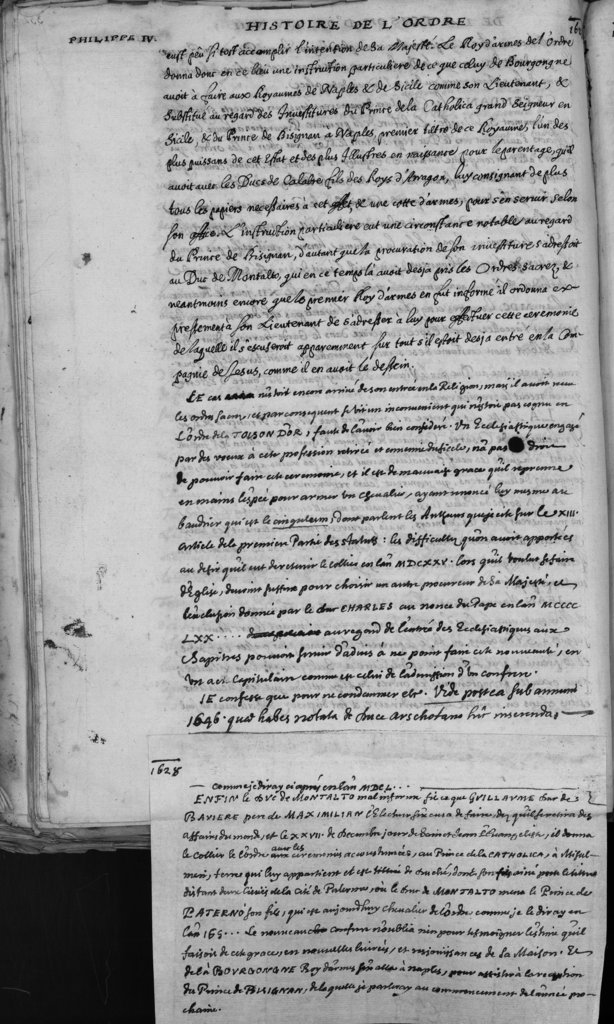 HISTOIRE DE L'ORDRE
PHILIPPE IV.
eust peu si tost accomplir l'intention de Sa Majesté. Le Roy d'armes de l'Ordre
donna dont en ce lieu une instruction particuliere de ce que celuy de Bourgongne
avoit a faire aux Royaumes de Naples & de Sicile comme son Lieutenant, &
Substitut au regard des Investitures du Prince de la Catholica grand Seigneur en
Sicile, & du Prince de Bisignan a Naples, premier tiltre de ce Royaume, l'un des
plus puissans de cet Estat et des plus Illustres en naissance pour le parentage, qu'il
avoit avec les Ducs de Calabre fils des Roys d'Arragon, luy consignant de plus
tous les papiers necessaires à cet effet & une cotte d'armes, pour s'en servir selon
son office. L'instruction particuliere eut une circonstance notable au regard
du Prince de Bisignan, d'autant que la procuration de son investiture s'adressoit
au Duc de Montalto, qui en ce temps la avoit desja pris les Ordres sacrez, &
neantmoins encore que le premier Roy d'armes en fut informé il ordonna ex-
pressement a son Lieutenant de s'adresser à luy pour effectuer cette ceremonie
de laquelle il s'escuseroit apparemment sur tout s'il estoit desja entré en la Com-
pagnie de Jesus, comme il en avoit le dessein.
LE cas n'estoit encore arrivé de son entree en la Religion, mais il avoit receu
les ordres sacrez, et par consequent se vit un inconvenient qui n'estoit pas cognu en
L'ordre de la TOISON D'OR, faute de l'avoir bien consideré. Un Ecclesiastique engagé
par des voeux à cete profession retirée et ennemie du siecle, n'a pas droit
de pouvoir faire cete ceremonie, et il est de mauvaise grace qu'il reprenne
en mains l'espée pour armer un chevalier, ayant renoncé luy mesme au
baudrier qui est le cingulum, dont parlent les Autheurs que je cite sur le XIII.
Article de la premiere Partie des statuts: les difficultez qu'on avoit apportées
au desir qu'il eut de retenir le collier en l'an MDCXXV. lors qu'il voulut se faire
d'Eglise, devoient suffire pour choisir un autre procureur de Sa Majesté, et
l'exclusion donnée par le duc CHARLES au nonce du Pape en l'an MCCCC
LXX .... au regard de l'entrée des Ecclesiastiques aux
Chapitres pouvoit servir d'advis à ne point faire cete nouveauté, en
un act capitulaire comme est celui de l'admission d'un confrere.
JE confesse que pour ne condamner etc. Vide postea sub annum
1646. quae habes notata de Duce Arschotano hic inserenda.
1628
comme je diray ci apres en l'an MDCL...
ENFIN le Duc de MONTALTO mal informé fit ce que GUILLAUME duc de
BAVIERE pere de MAXIMILIAN l'Electeur s'excusa de faire, des qu'il se retira des
affaires du monde, et le XXVII. de decembre jour de saint Jean l'Evangeliste, il donna
le Collier de l'ordre avec les ceremonies accoustumées, au Prince de la CATHOLICA, à Misil-
meri, terre qui luy appartient et est titree de duché, dont son fils aisné porte le titre
distant deux lieuës de la cité de Palermo, où le duc de MONTALTO mena le Prince de
PATERNO son fils, qui est aujourd'huy chevalier de l'ordre comme je le diray en
l'an 165... Le nouveau confrere n'oublia rien pour tesmoigner l'estime qu'il
faisoit de cete grace, en nouvelles livrées, et resjouissances de sa Maison. Et
de là BOURGONGNE Roy d'armes s'en alla à Naples, pour assister à la reception
du Prince de BISIGNAN, de laquelle je parleray au commencement de l'année pro-
chaine.